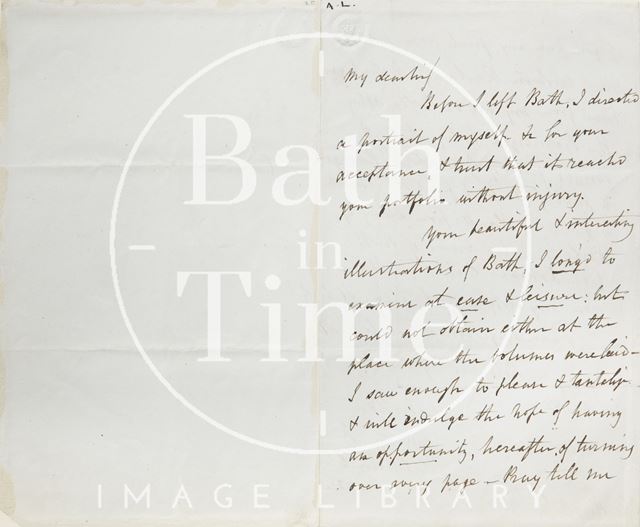 A.L.
My dear Sir/
Before I left Bath, I directed
a portrait of myself to be for your
acceptance, & trust that it reachd
your portfolio without injury.
Your beautiful & interesting
illustrations of Bath, I long'd to
examine at ease & leisure: but
could not obtain either at the
place where the Volumes were laid -
I saw enough to please & tantalize
& will indulge the hope of having
an opportunity, hereafter, of turning
over every page - Pray tell me
Bath
in
Time
IMAGE LIBRARY